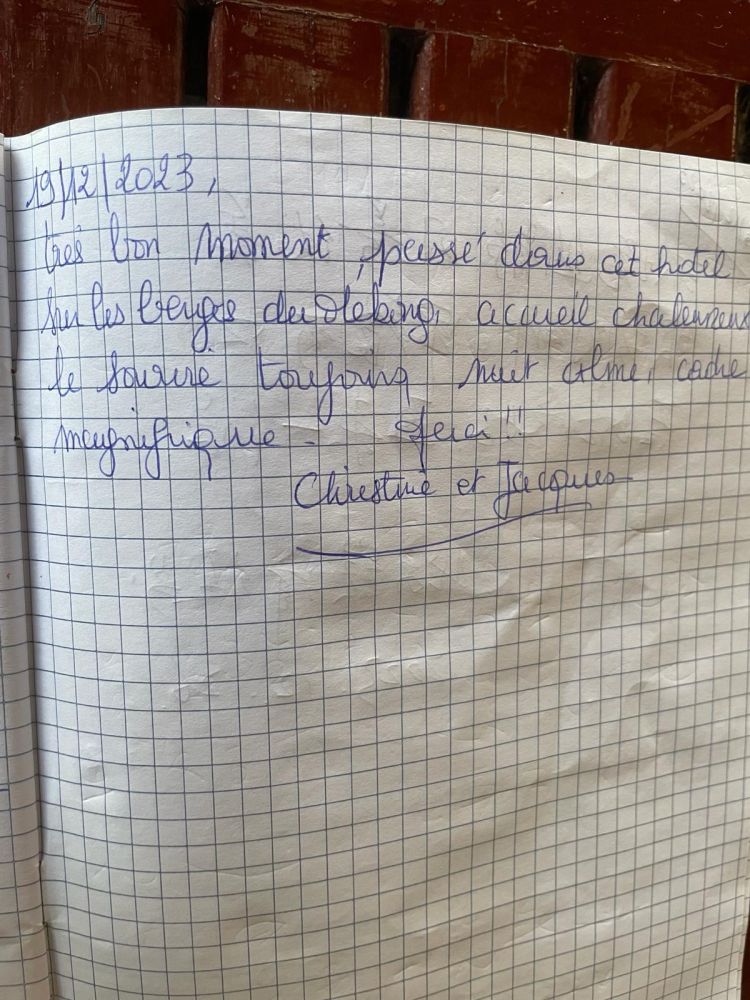 19/12/2023,
très bon moment, passé dans cet hotel
sur les berges du Mékong, accueil chaleureux
le sourire toujours nuit calme, cadre
magnifique - Merci!!
Christine et Jacques